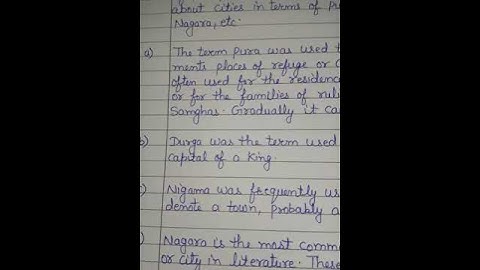 about cities in terms of
Nagara, etc.
a) The term pura was used
ments places of refuge or
often used for the residenc
or for the families of ruli
Samghas. Gradually it ca
b) Durga was the term used
capital of a king.
) Nigama was frequently us
denote a town, probably a
) Nagara is the most comm
or city in literature. These